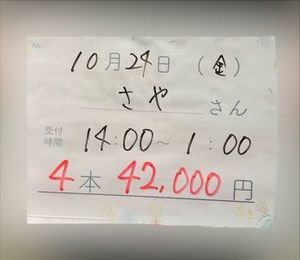 10月24日 (金)
さや さん
受付時間 14:00~1:00
4本 42,000円